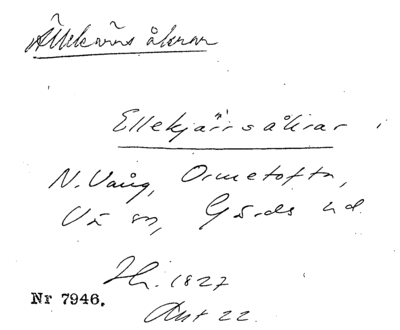 Ällekärrs åkrar
Ellekjärrsåkrar i
N. Vång, Ormetofta,
Vå sn, Gärds hd.
Hi. 1827
Nr 7946.
Akt 22.